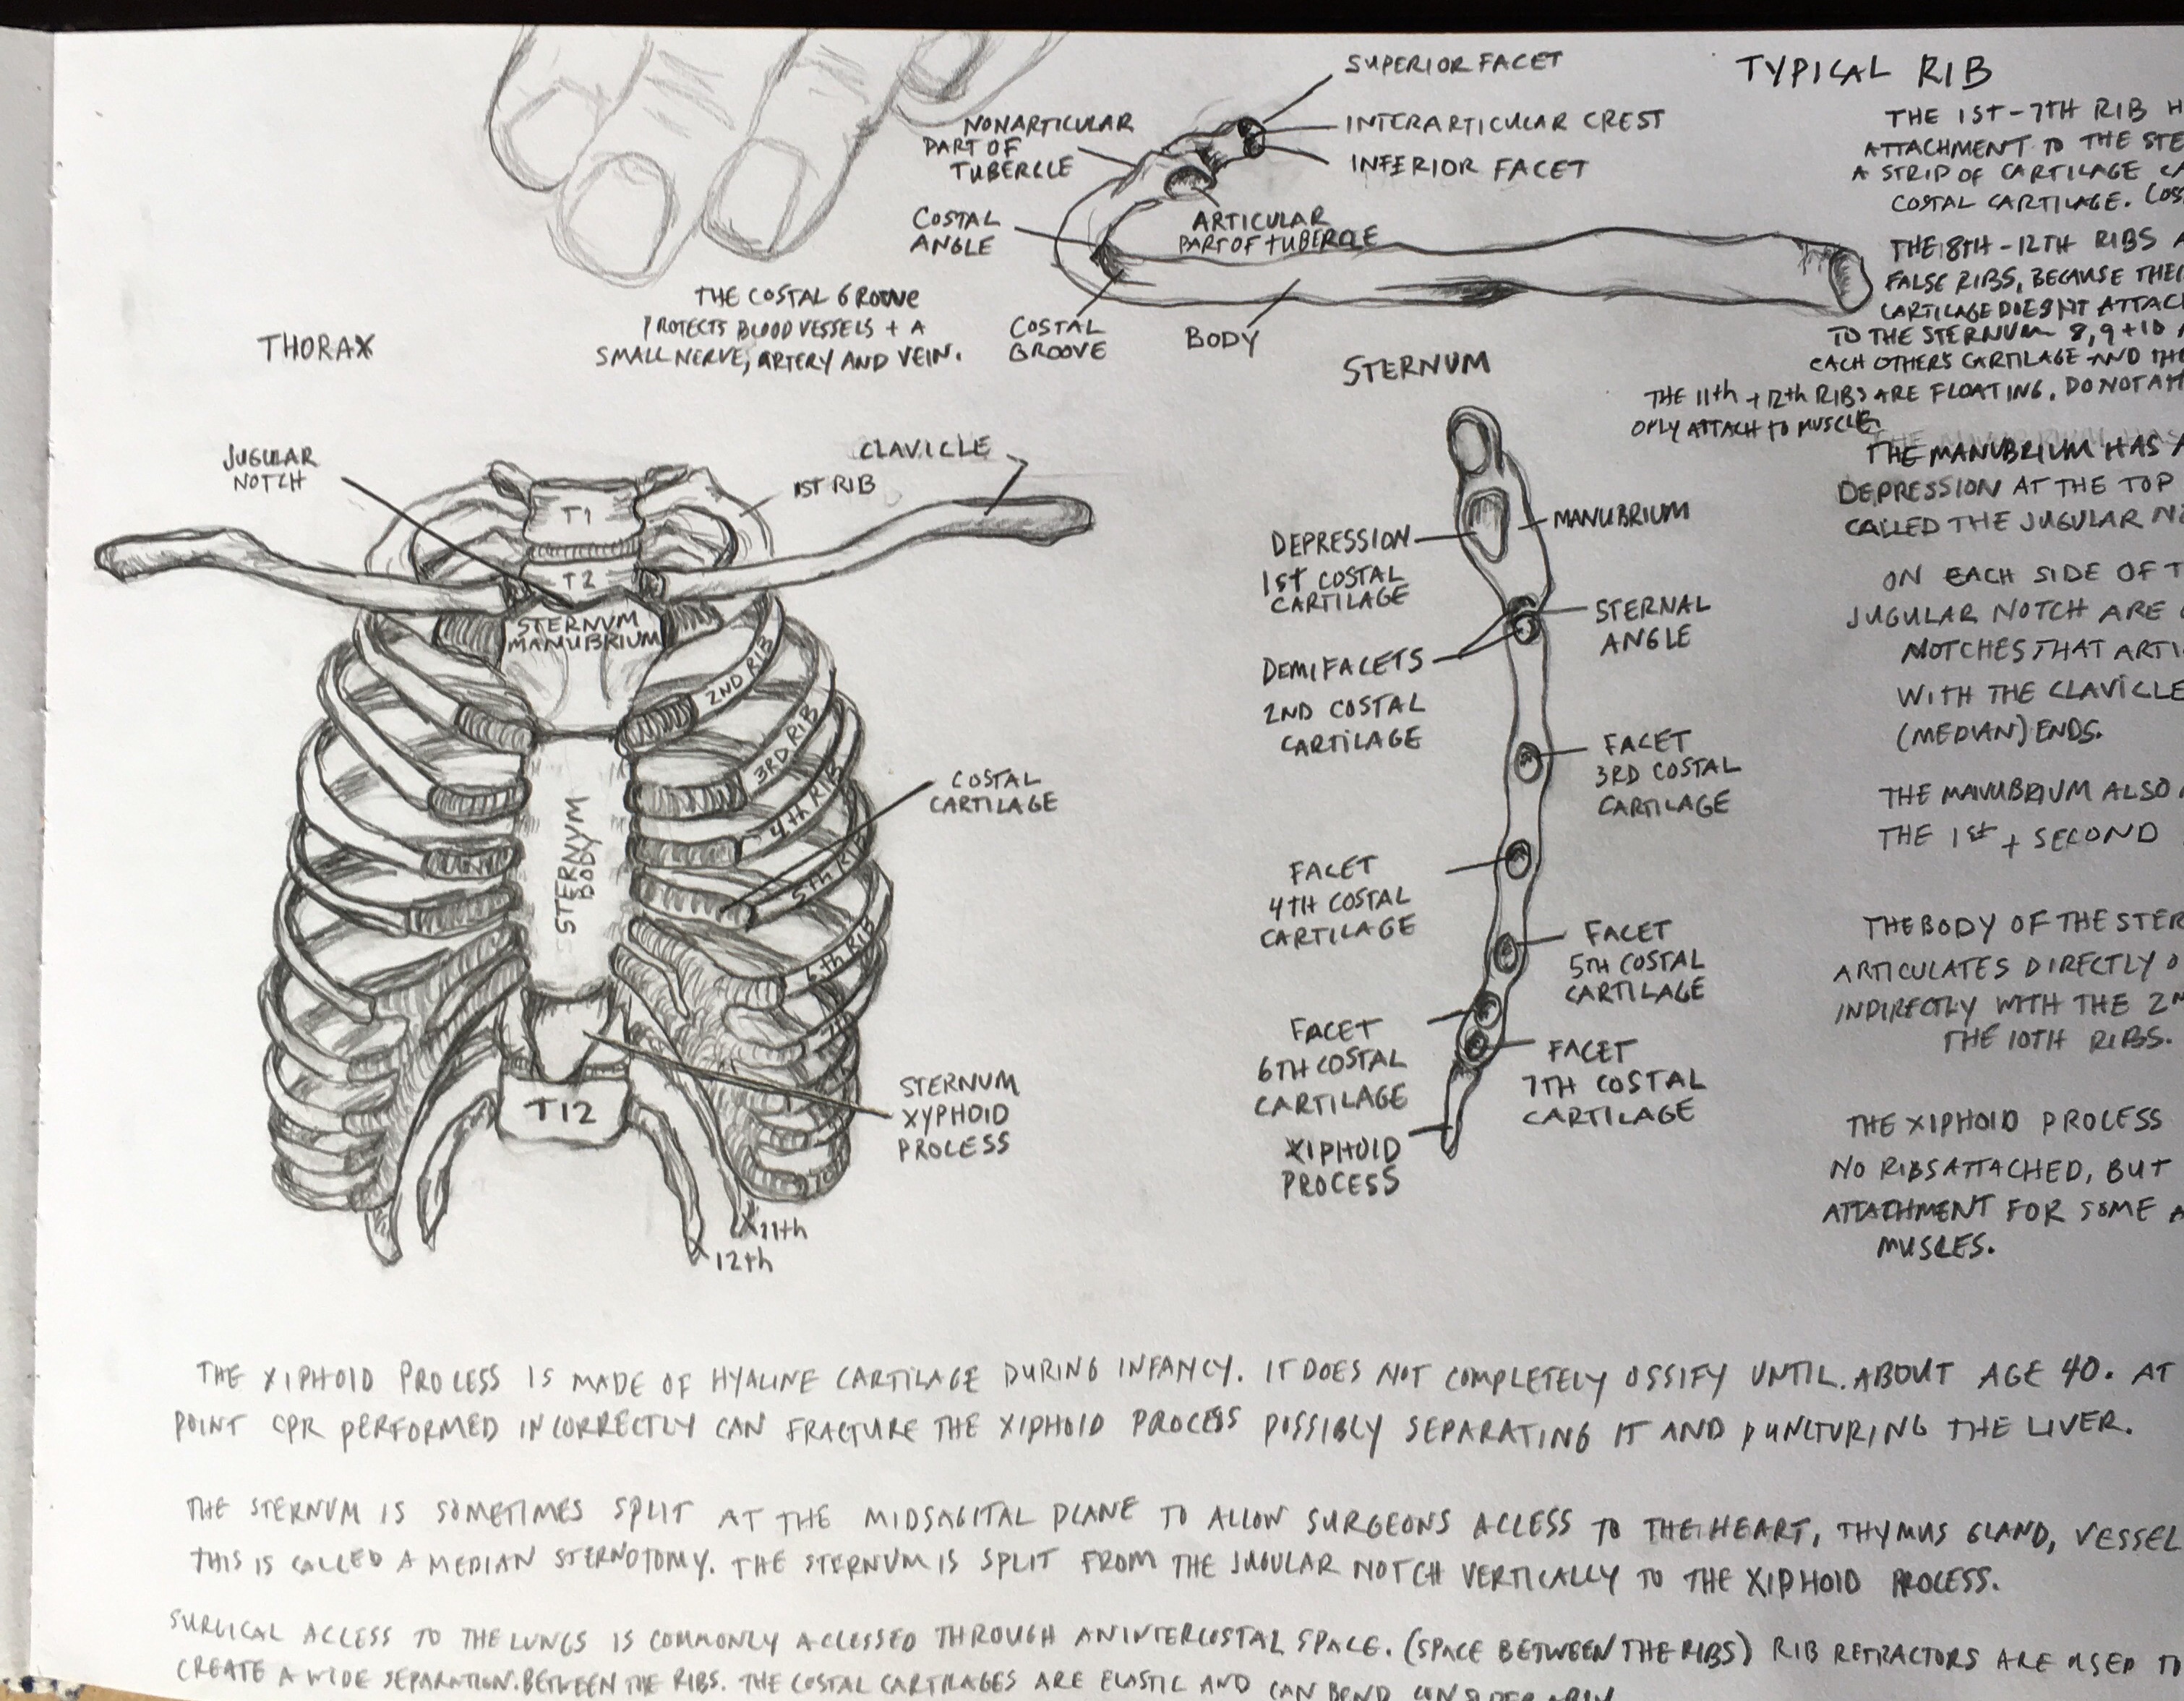 TYPICAL RIB
SUPERIOR FACET
INTERARTICULAR CREST
INFERIOR FACET
NONARTICULAR
PART OF
TUBERCLE
COSTAL
ANGLE
ARTICULAR
PART OF TUBERCLE
COSTAL
GROOVE
BODY
THE COSTAL GROOVE
PROTECTS BLOOD VESSELS + A
SMALL NERVE, ARTERY AND VEIN.
THE 1ST-7TH RIB H
ATTACHMENT TO THE STE
A STRIP OF CARTILAGE CA
COSTAL CARTILAGE. COS
THE 8TH-12TH RIBS A
FALSE RIBS, BECAUSE THEI
CARTILAGE DOESNT ATTAC
TO THE STERNUM 8, 9 + 10 A
EACH OTHERS CARTILAGE AND THE
THE 11th + 12th RIBS ARE FLOATING, DO NOT ATT
ONLY ATTACH TO MUSCLE.
THORAX
JUGULAR
NOTCH
CLAVICLE
1ST RIB
T1
T2
STERNUM
MANUBRIUM
2ND RIB
3RD RIB
4th RIB
5th RIB
6th RIB
7th
10
COSTAL
CARTILAGE
STERNUM
BODY
STERNUM
XYPHOID
PROCESS
T12
11th
12th
STERNUM
MANUBRIUM
DEPRESSION
1st COSTAL
CARTILAGE
STERNAL
ANGLE
DEMIFACETS
2ND COSTAL
CARTILAGE
FACET
3RD COSTAL
CARTILAGE
FACET
4TH COSTAL
CARTILAGE
FACET
5TH COSTAL
CARTILAGE
FACET
6TH COSTAL
CARTILAGE
FACET
7TH COSTAL
CARTILAGE
XIPHOID
PROCESS
THE MANUBRIUM HAS A
DEPRESSION AT THE TOP
CALLED THE JUGULAR NO
ON EACH SIDE OF T
JUGULAR NOTCH ARE
NOTCHES THAT ARTI
WITH THE CLAVICLE
(MEDIAN) ENDS.
THE MANUBRIUM ALSO A
THE 1st + SECOND
THE BODY OF THE STER
ARTICULATES DIRECTLY O
INDIRECTLY WITH THE 2N
THE 10TH RIBS.
THE XIPHOID PROCESS
NO RIBS ATTACHED, BUT
ATTACHMENT FOR SOME A
MUSCLES.
THE XIPHOID PROCESS IS MADE OF HYALINE CARTILAGE DURING INFANCY. IT DOES NOT COMPLETELY OSSIFY UNTIL. ABOUT AGE 40. AT
POINT CPR PERFORMED INCORRECTLY CAN FRACTURE THE XIPHOID PROCESS POSSIBLY SEPARATING IT AND PUNCTURING THE LIVER.
THE STERNUM IS SOMETIMES SPLIT AT THE MIDSAGITAL PLANE TO ALLOW SURGEONS ACCESS TO THE HEART, THYMUS GLAND, VESSEL
THIS IS CALLED A MEDIAN STERNOTOMY. THE STERNUM IS SPLIT FROM THE JUGULAR NOTCH VERTICALLY TO THE XIPHOID PROCESS.
SURGICAL ACCESS TO THE LUNGS IS COMMONLY ACCESSED THROUGH AN INTERCOSTAL SPACE. (SPACE BETWEEN THE RIBS) RIB RETRACTORS ARE USED TO
CREATE A WIDE SEPARATION. BETWEEN THE RIBS. THE COSTAL CARTILAGES ARE ELASTIC AND CAN BEND CONSIDERABLY